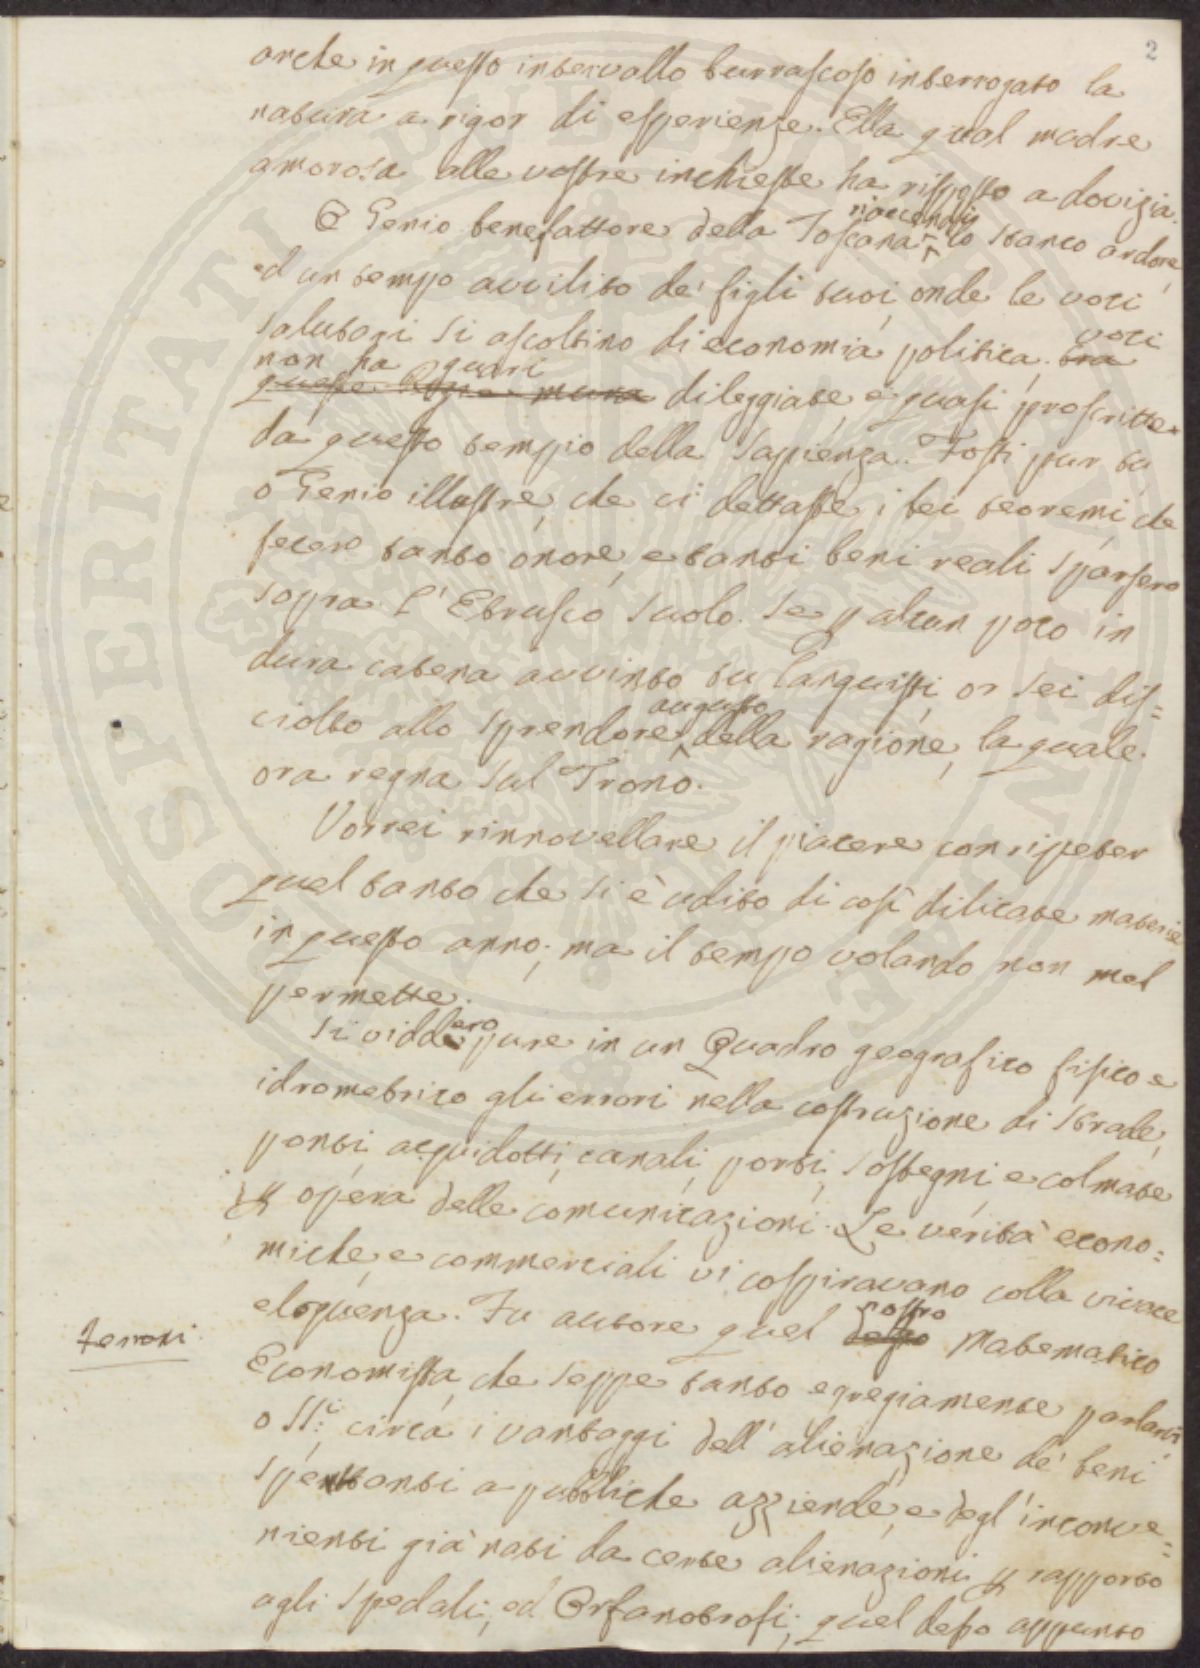 2
anche in questo intervallo burrascoso interrogato la
natura a rigor di esperienze. Ella qual madre
amorosa alle vostre inchieste ha risposto a dovizia.
O Genio benefattore della Toscana riaccendi lo stanco ardore,
ed un tempo avvilito de' figli tuoi, onde le voci
salutari si ascoltino di economia politica, voci tra
non ha guari
queste mura dileggiate, e quasi proscritte
da questo tempio della Sapienza. Fosti pur tu
o Genio illustre, che ci dettaste i bei teoremi, che
fecero tanto onore, e tanti beni reali sparsero
sopra l'Etrusco suolo. Se p alcun poco in
dura catena avvinto tu languisti, or sei dis=
ciolto allo sprendore augusto della ragione, la quale
ora regna sul Trono.
Vorrei rinnovellare il piacere con ripeter
quel tanto che si è udito di così dilicate materie
in questo anno; ma il tempo volando non mel
permette.
Si viddero pure in un Quadro geografico fisico e
idrometrico gli errori nella costruzione di strade,
ponti, acquidotti, canali, porti, sostegni e colmate
p opera delle comunicazioni. Le verità econo=
miche, e commerciali vi cospiravano colla vivace
eloquenza. Fu autore quel nostro desso Matematico
Ferroni
Economista, che seppe tanto egregiamente parlarci,
o SS.i, circa i vantaggi dell'alienazione de' beni
spettanti a pubbliche azziende, e degl'inconve=
nienti già nati da certe alienazioni p rapporto
agli Spedali, ed Orfanotrofi; quel desso appunto